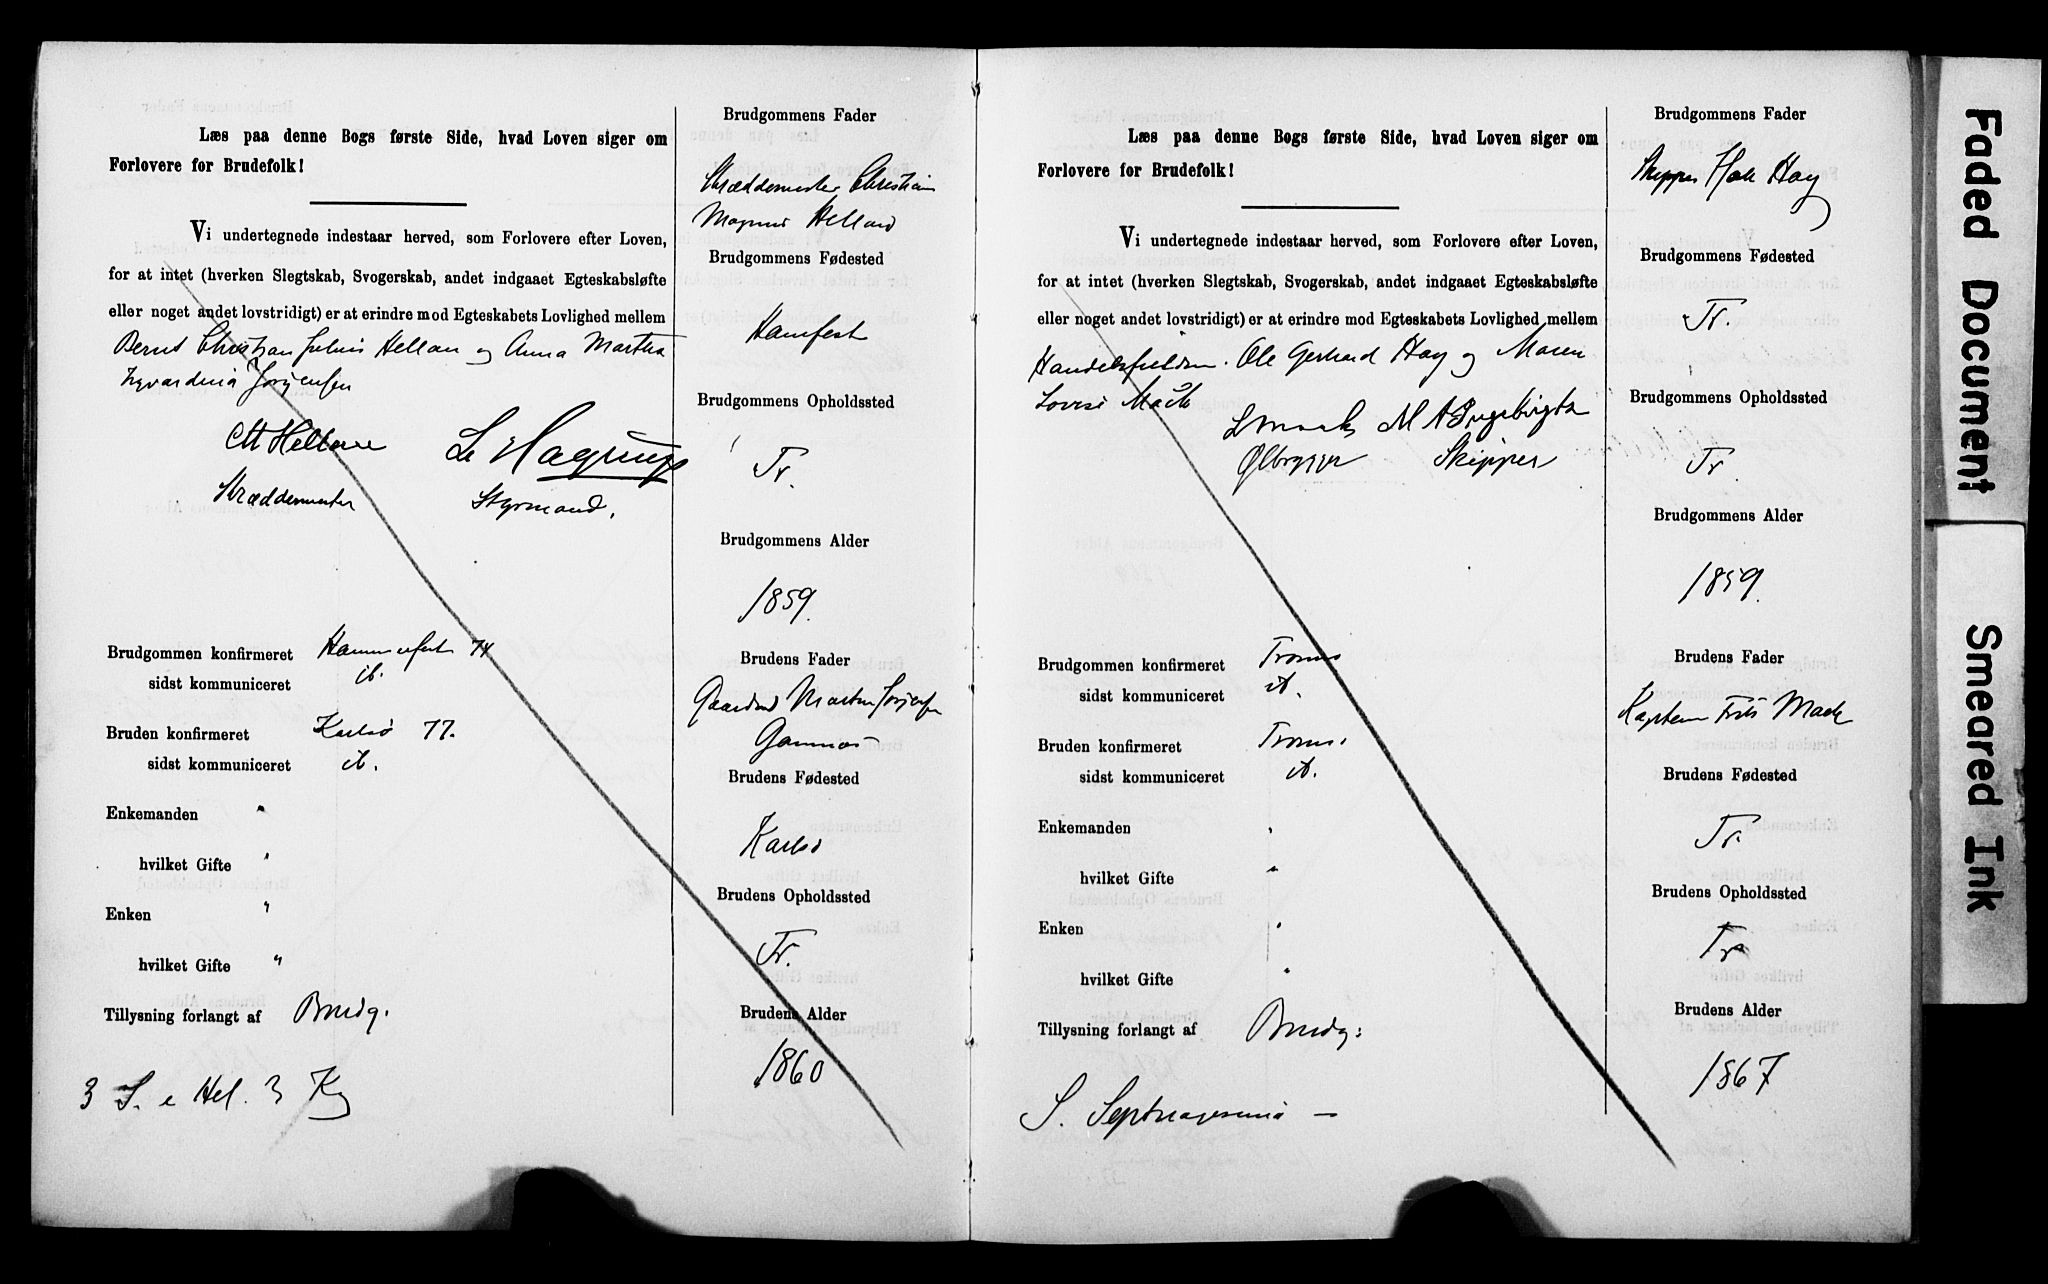 Læs paa denne Bogs første Side, hvad Loven siger om
Forlovere for Brudefolk!
Vi undertegnede indestaar herved, som Forlovere efter Loven,
for at intet (hverken Slegtskab, Svogerskab, andet indgaaet Egteskabsløfte
eller noget andet lovstridigt) er at erindre mod Egteskabets Lovlighed mellem
Bernt Christian Julius Hellan og Anna Martha
Jørgensen
CM Helland L. Hagerup
Skræddermester Styrmand.
Brudgommen konfirmeret Hammerfest 74
sidst kommuniceret ib.
Bruden konfirmeret Karlsø 77.
sidst kommuniceret ib.
Enkemanden "
hvilket Gifte "
Enken "
hvilket Gifte "
Tillysning forlangt af Brudg.
3 S. e Hel. 3 Kg
Brudgommens Fader
Skræddermester Christian
Magnus Helland
Brudgommens Fødested
Hamfest
Brudgommens Opholdssted
Tr.
Brudgommens Alder
1859.
Brudens Fader
Gaardmd Morten Jørgensen
Brudens Fødested
Karlsø
Brudens Opholdssted
Tr.
Brudens Alder
1860
Læs paa denne Bogs første Side, hvad Loven siger om
Forlovere for Brudefolk!
Vi undertegnede indestaar herved, som Forlovere efter Loven,
for at intet (hverken Slegtskab, Svogerskab, andet indgaaet Egteskabsløfte
eller noget andet lovstridigt) er at erindre mod Egteskabets Lovlighed mellem
Ole Gerhard Hay og Maren
Lovise Mack
L Mack M A Ingebrigtsen
Ølbrygger Skipper
Brudgommen konfirmeret Troms
sidst kommuniceret ib.
Bruden konfirmeret Troms.
sidst kommuniceret ib.
Enkemanden "
hvilket Gifte "
Enken "
hvilket Gifte "
Tillysning forlangt af Brudg:
S. Septuagesima —
Brudgommens Fader
Skipper Hay
Brudgommens Fødested
Tr.
Brudgommens Opholdssted
Tr.
Brudgommens Alder
1859.
Brudens Fader
Kaptein Frits Mack
Brudens Fødested
Tr.
Brudens Opholdssted
Tr
Brudens Alder
1867
Faded Document
Smeared Ink